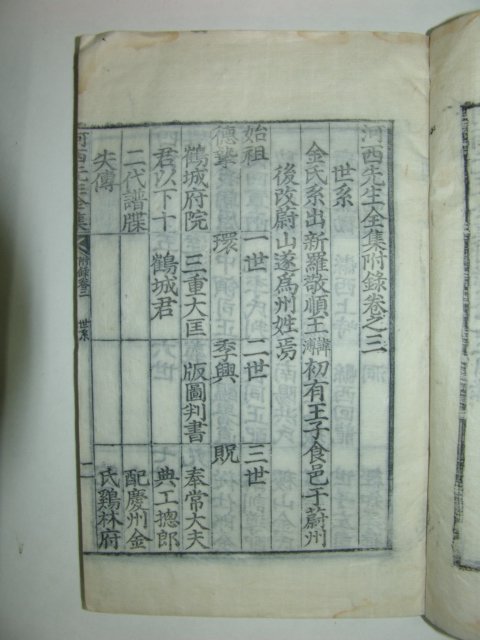 河西先生全集附錄卷之三
世系
金氏系出新羅敬順王諱溥初有王子食邑于蔚州
後改蔚山遂爲州姓焉
始祖 一世 二世 三世
德摯 環 季興 貺
鶴城府院 三重大匡 版圖判書 奉常大夫
君以下十 鶴城君 典工摠郎
二代譜牒 配慶州金
失傳 氏鷄林府
河西先生全集 附錄卷三 世系 一